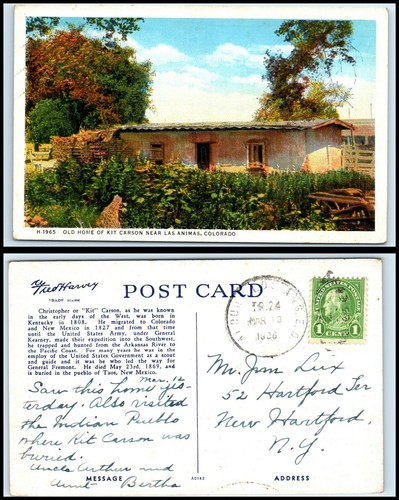 H-1965 OLD HOME OF KIT CARSON NEAR LAS ANIMAS, COLORADO
Fred Harvey
TRADE MARK
POST CARD
Christopher or "Kit" Carson, as he was known
in the early days of the West, was born in
Kentucky in 1808. He migrated to Colorado
and New Mexico in 1827 and from that time
until the United States Army, under General
Kearney, made their expedition into the Southwest,
he trapped and hunted from the Arkansas River to
the Pacific Coast. For many years he was in the
employ of the United States Government as a scout
and guide and it was he who led the way for
General Fremont. He died May 23rd, 1869, and
is buried in the pueblo of Taos, New Mexico.
Mar. 12
Saw this home yes-
terday. Also visited
the Indian Pueblo
where Kit Carson was
buried.
Uncle Arthur and
Aunt Bertha
MESSAGE
A5142
ADDRESS
TR.24
MAR 13
1936
1 CENT 1
Mr. Jim Lux
52 Hartford Ter
New Hartford,
N.Y.